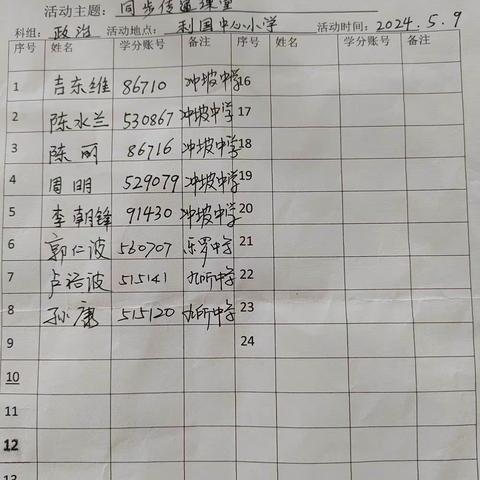 活动主题: 同步传递课堂
科组: 政治 活动地点: 利国中心小学 活动时间: 2024.5.9
序号 姓名 学分账号 备注 序号 姓名 学分账号 备注
1 吉东维 86710 冲坡中学 16
2 陈水兰 530867 冲坡中学 17
3 陈丽 86716 冲坡中学 18
4 周明 529079 冲坡中学 19
5 李朝锋 91430 冲坡中学 20
6 郭仁波 560707 乐罗中学 21
7 卢裕波 515141 九所中学 22
8 孙康 515120 九所中学 23
9 24
10
11
12
13